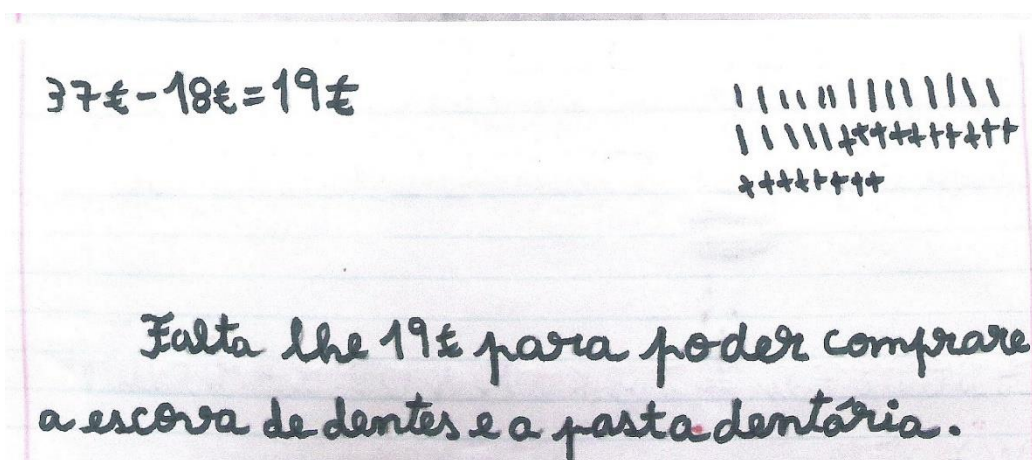 37€-18€=19€
Falta lhe 19€ para poder comprare
a escova de dentes e a pasta dentária.